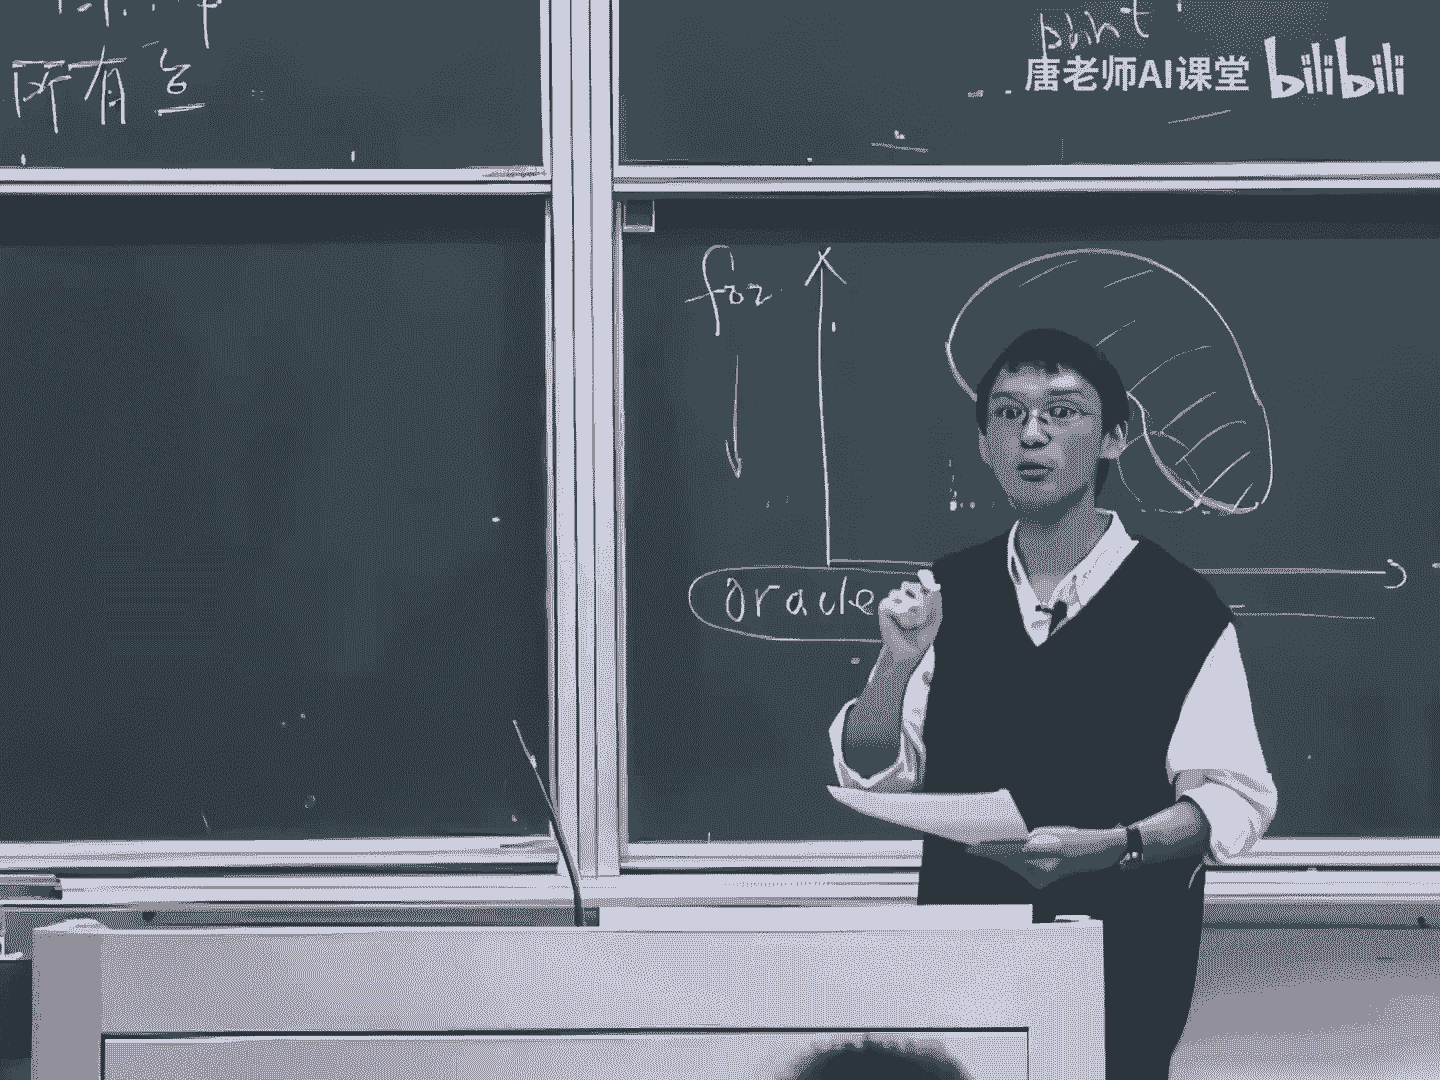 所有
point
唐老师AI课堂 bilibili
for
oracle